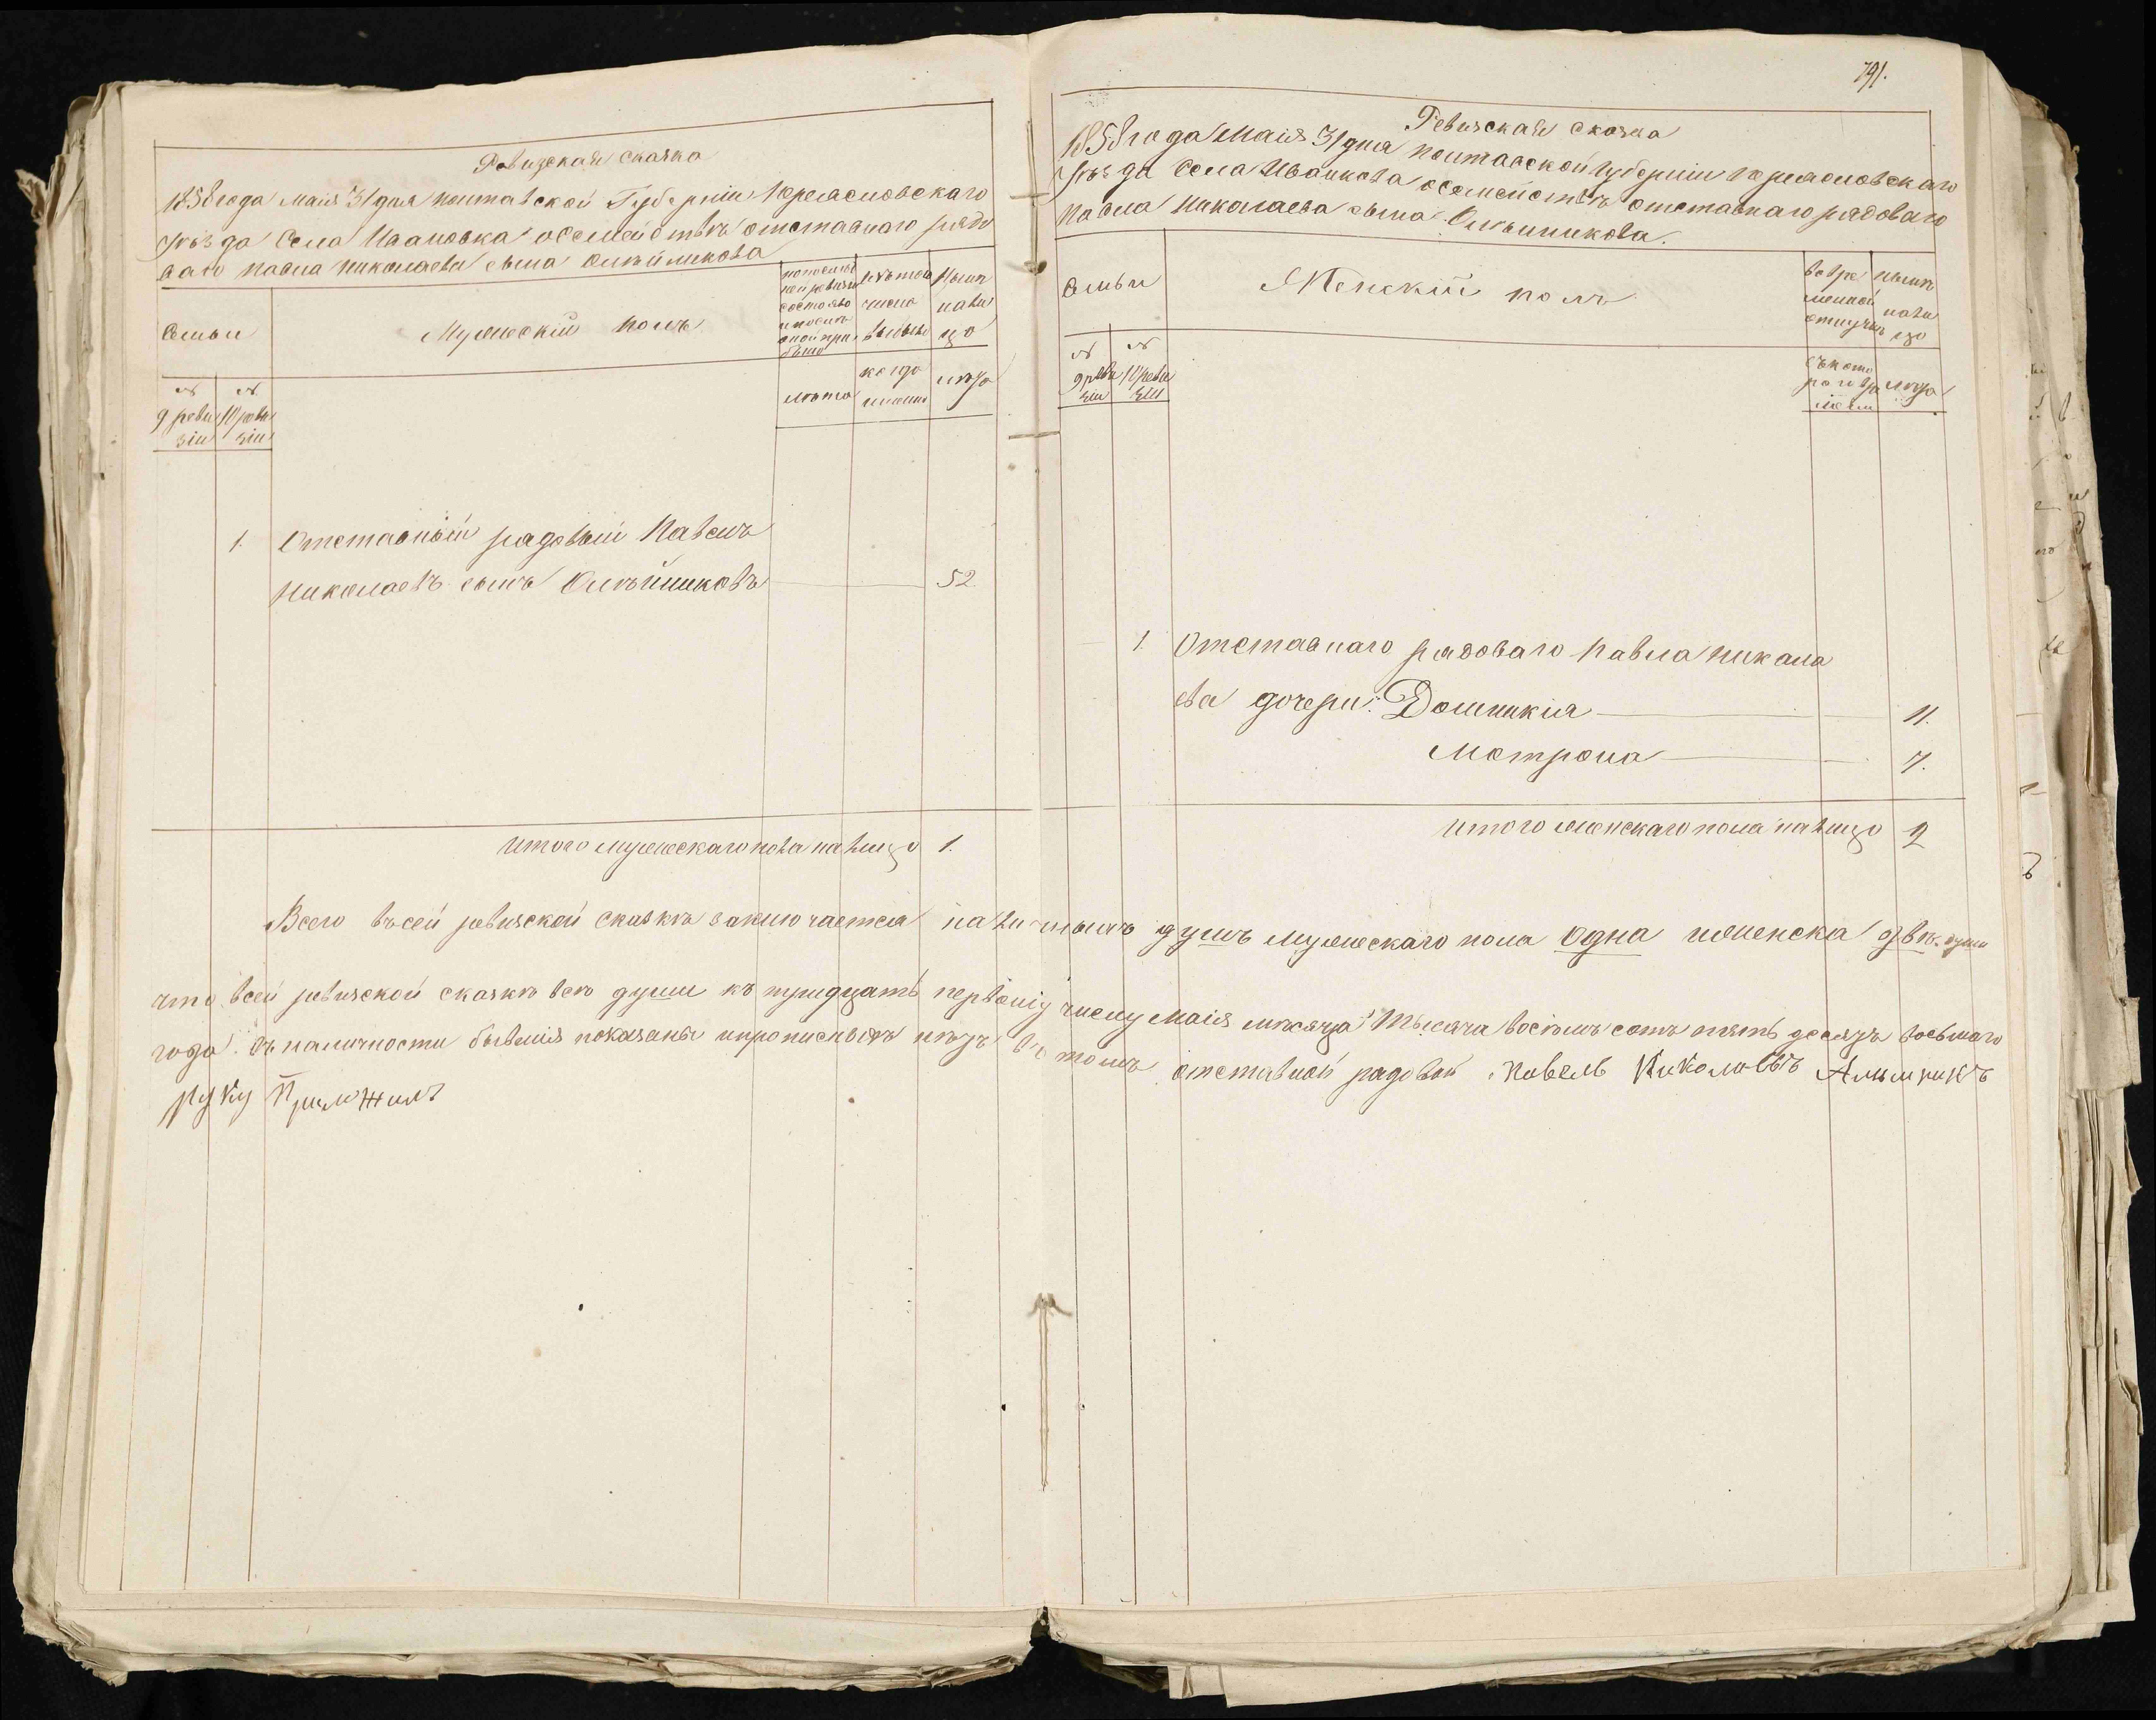 791.
Ревизская сказка
1858 года маия 31 дня полтавской Губерніи Кременчовскаго
уѣзда Села Ивановка о семействѣ отставнаго рядо
ваго павла николаева сына Олѣйникова
Семьи
Мужескій полъ
по послѣд
ней ревизіи
состояло
и послѣ
оной при
было
изъ того
числа
выбыло
Нынѣ
нали
цо
№
9 реви
зіи
№
10 реви
зіи
лѣта
когда
именно
лѣта
1. Отставный рядовый Павелъ
николаевъ сынъ Олѣйниковъ 52
итого мужескаго пола налицо 1.
Ревизская сказка
1858 года Маия 31 дня полтавской губерніи
уѣзда Села Иванкова о семействѣ отставнаго рядоваго
павла николаева сына Олѣйникова.
Семьи
Женскій полъ
во вре
менной
отлучкѣ
нынѣ
нали
цо
№
9 реви
зіи
№
10 реви
зіи
съ кото
раго вре
мени
лѣта
1. Отставнаго рядоваго павла никола
ева дочери: Домникія 11.
Мотрона 7.
итого женскаго пола налицо 2
Всего въ сей ревизской сказкѣ заключается наличныхъ душъ мужескаго пола одна и женска двѣ души
что всей ревизской сказкѣ всѣ души къ тридцать первому числу Маия мѣсяца тысяча восемь сотъ пять десятъ восьмаго
года въ наличности бывшия показаны и прописныхъ нѣтъ в томъ отставной радовой Павель Николовъ
руку Приложилъ